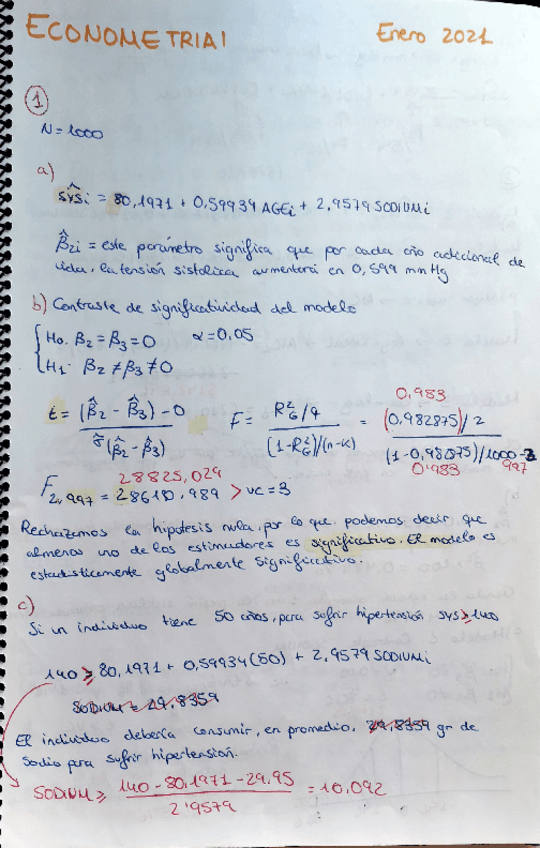 ECONOMETRIA I Enero 2021
1
N = 1000
a)
sysi = 80,1971 + 0,59934 AGEi + 2,9579 SODIUMi
β̂2i = este parámetro significa que por cada año adicional de
vida, la tensión sistólica aumentará en 0,599 mmHg
b) Contraste de significatividad del modelo
H0: β2 = β3 = 0 α = 0,05
H1: β2 ≠ β3 ≠ 0
0,983
t = (β̂2 - β̂3) - 0 / σ̂(β̂2 - β̂3) F = R²G/q / (1-R²G)/(n-k) = (0,982875)/2 / (1-0,98275)/1000-3
0'983 997
28825,029
F2,997 = 28610,989 > vc = 3
Rechazamos la hipotesis nula, por lo que podemos decir que
almenos uno de los estimadores es significativo. El modelo es
estadisticamente globalmente significativo.
c)
Si un individuo tiene 50 años, para sufrir hipertensión sys ≥ 140
140 ≥ 80,1971 + 0,59934(50) + 2,9579 SODIUMi
SODIUM = 29,8359
El individuo debería consumir, en promedio, 29,8359 gr de
sodio para sufrir hipertensión.
SODIUM ≥ 140 - 80,1971 - 29,95 / 2'9579 = 10,092